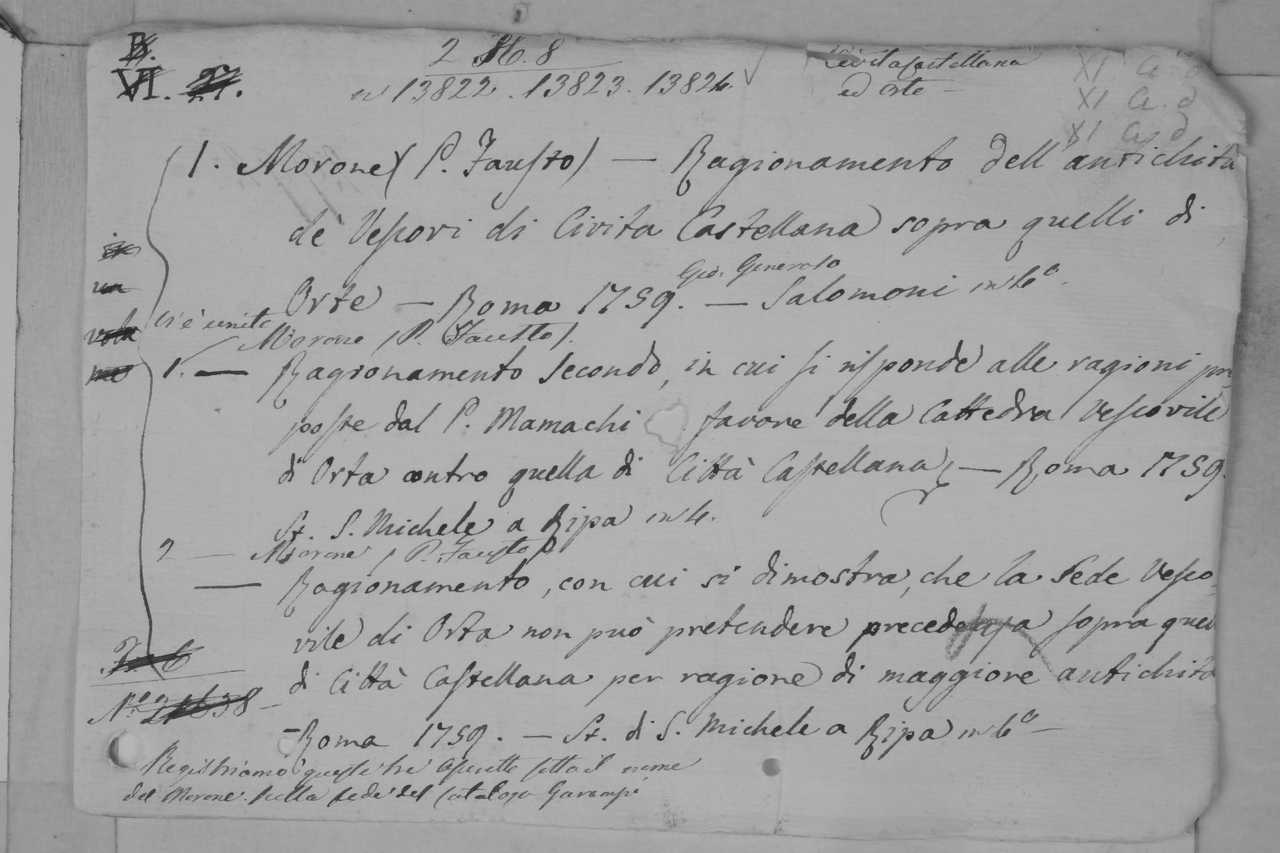 B.
VI. 27.
2 St. 8
n 13822. 13823. 13824.
Civita Castellana
ed Orte —
XI Ce. d
XI Ce. d
XI Ce. d
1. Morone (P. Fausto) — Ragionamento dell'antichità
de' Vescovi di Civita Castellana sopra quelli di
Orte — Roma 1759. — Gio. Generoso Salomoni in 4°.
in
un
volu
me
vi è unito
Morone (P. Fausto).
1. — Ragionamento secondo, in cui si risponde alle ragioni pro
poste dal P. Mamachi favore della Cattedra Vescovile
di Orta contro quella di Città Castellana — Roma 1759.
St. S. Michele a Ripa in 4.
2 — Morone (P. Fausto)
— Ragionamento, con cui si dimostra, che la Sede Vesco
vile di Orta non può pretendere precedenza sopra quella
di Città Castellana per ragione di maggiore antichità
— Roma 1759. — St. di S. Michele a Ripa in 4° —
N° 21638 —
Registriamo queste tre operette sotto il nome
del Morone sulla fede del Catalogo Garampi